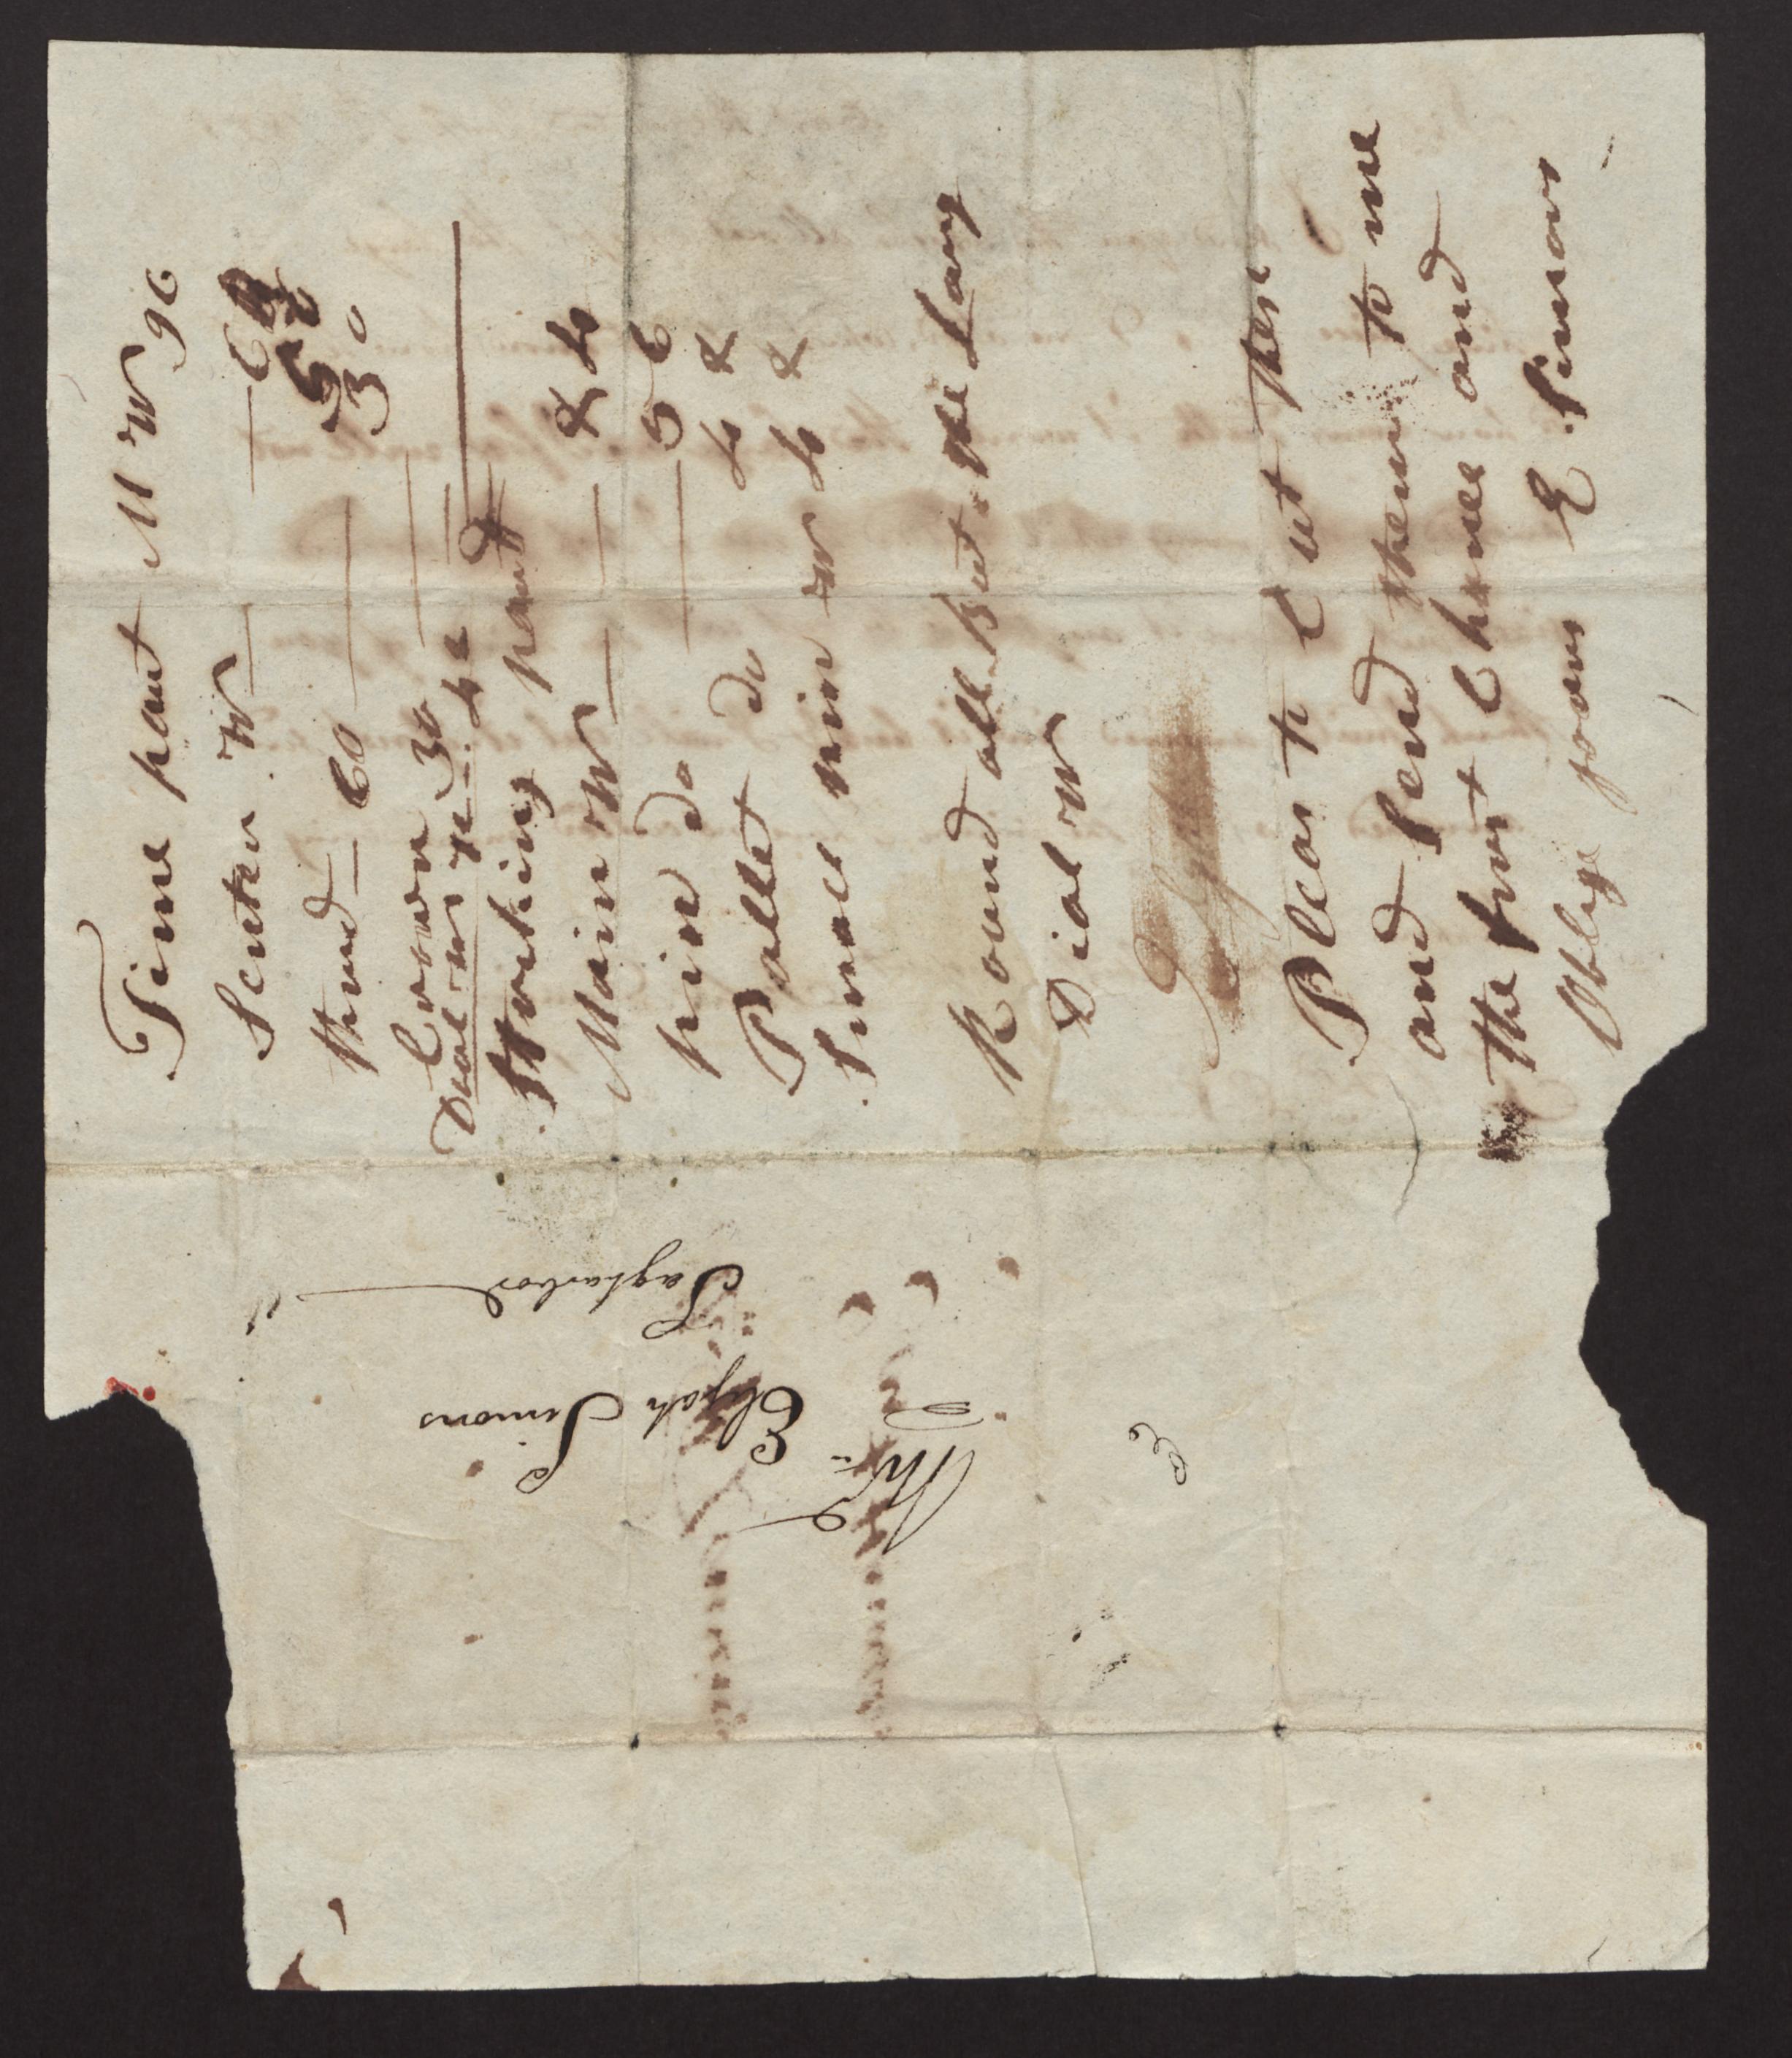 Time part M W 96
Senter W — 6
third — 60 — 30
Crown 30
Dial W ye 42
Storking part
Main W — 84
pin do — 56
Pallet do 48
Small pin W 48
Round all But the Larg
Dial W
Pleas to Cut thes
and Send them to me
the furst Chance and
Oblige yours E Simons
Mr. Elijah Simons
Sagharbor